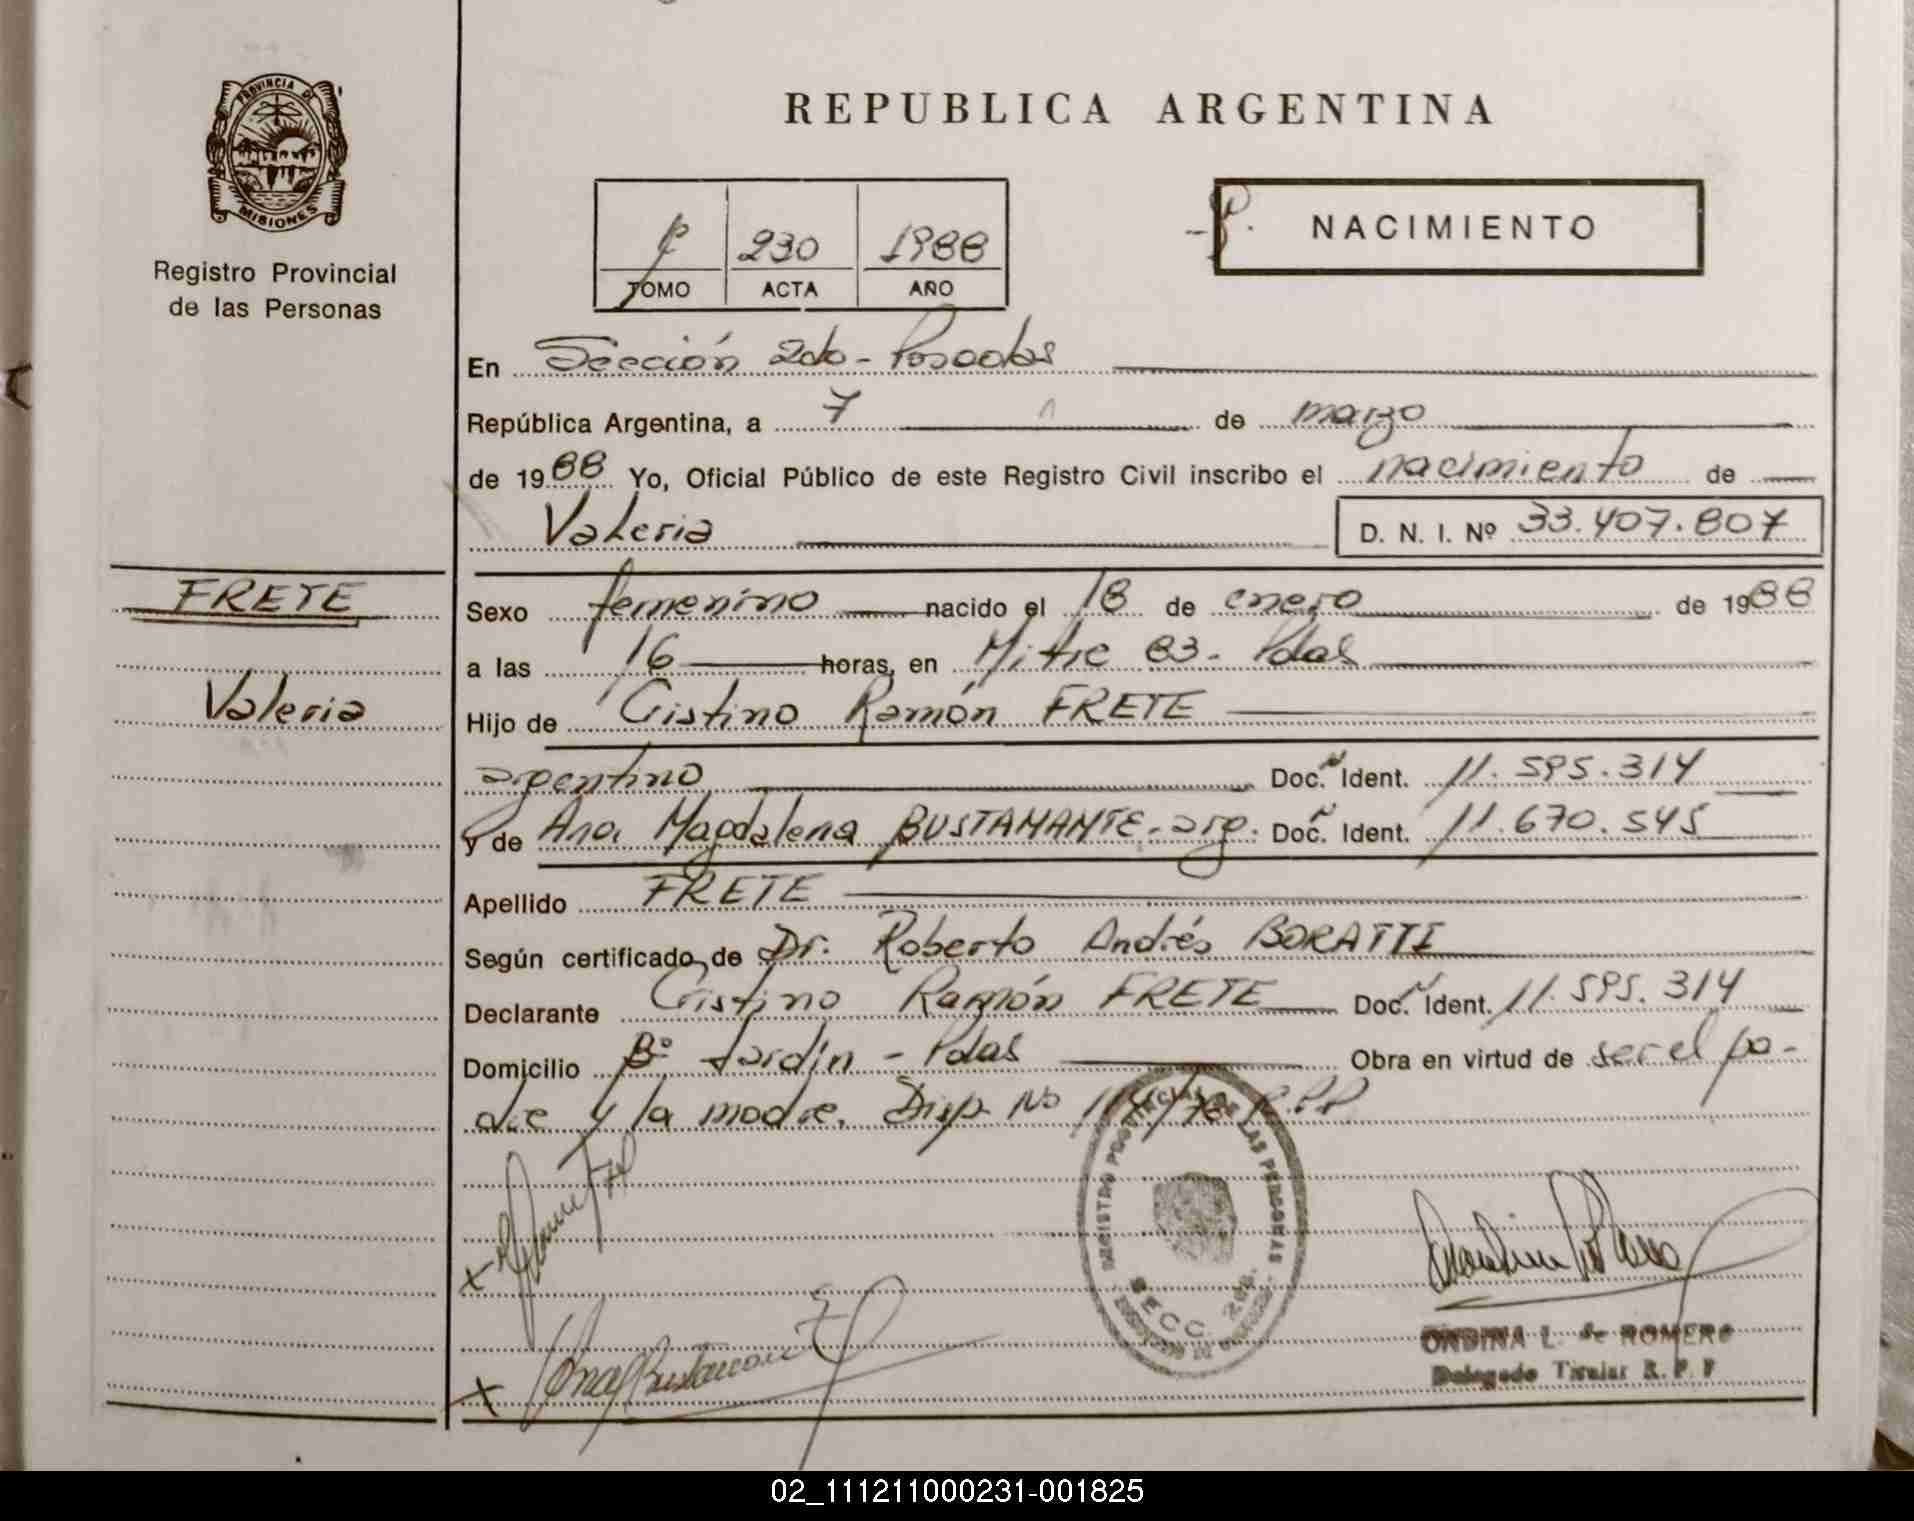 PROVINCIA DE
MISIONES
Registro Provincial
de las Personas
REPUBLICA ARGENTINA
230 1988
TOMO ACTA AÑO
NACIMIENTO
En Sección 2da - Posadas
República Argentina, a 7 de marzo
de 1988 Yo, Oficial Público de este Registro Civil inscribo el nacimiento de
Valeria D. N. I. Nº 33.407.807
FRETE
Sexo femenino nacido el 18 de enero de 1988
a las 16 horas, en Mitre 83 - Pdas
Valeria
Hijo de Cristino Ramón FRETE
argentino Doc. Ident. 11.595.314
y de Ana Magdalena BUSTAMANTE - arg. Doc. Ident. 11.670.545
Apellido FRETE
Según certificado de Dr. Roberto Andrés BORATTI
Declarante Cristino Ramón FRETE Doc. Ident. 11.595.314
Domicilio Bº Jardín - Pdas Obra en virtud de ser el pa-
dre y la madre. Disp. No R.P.P
REGISTRO PROVINCIAL DE LAS PERSONAS
SECC. 2da.
x
x Ana Bustamante
ONDINA L. de ROMERO
Delegado Titular R. P. P
02_111211000231-001825